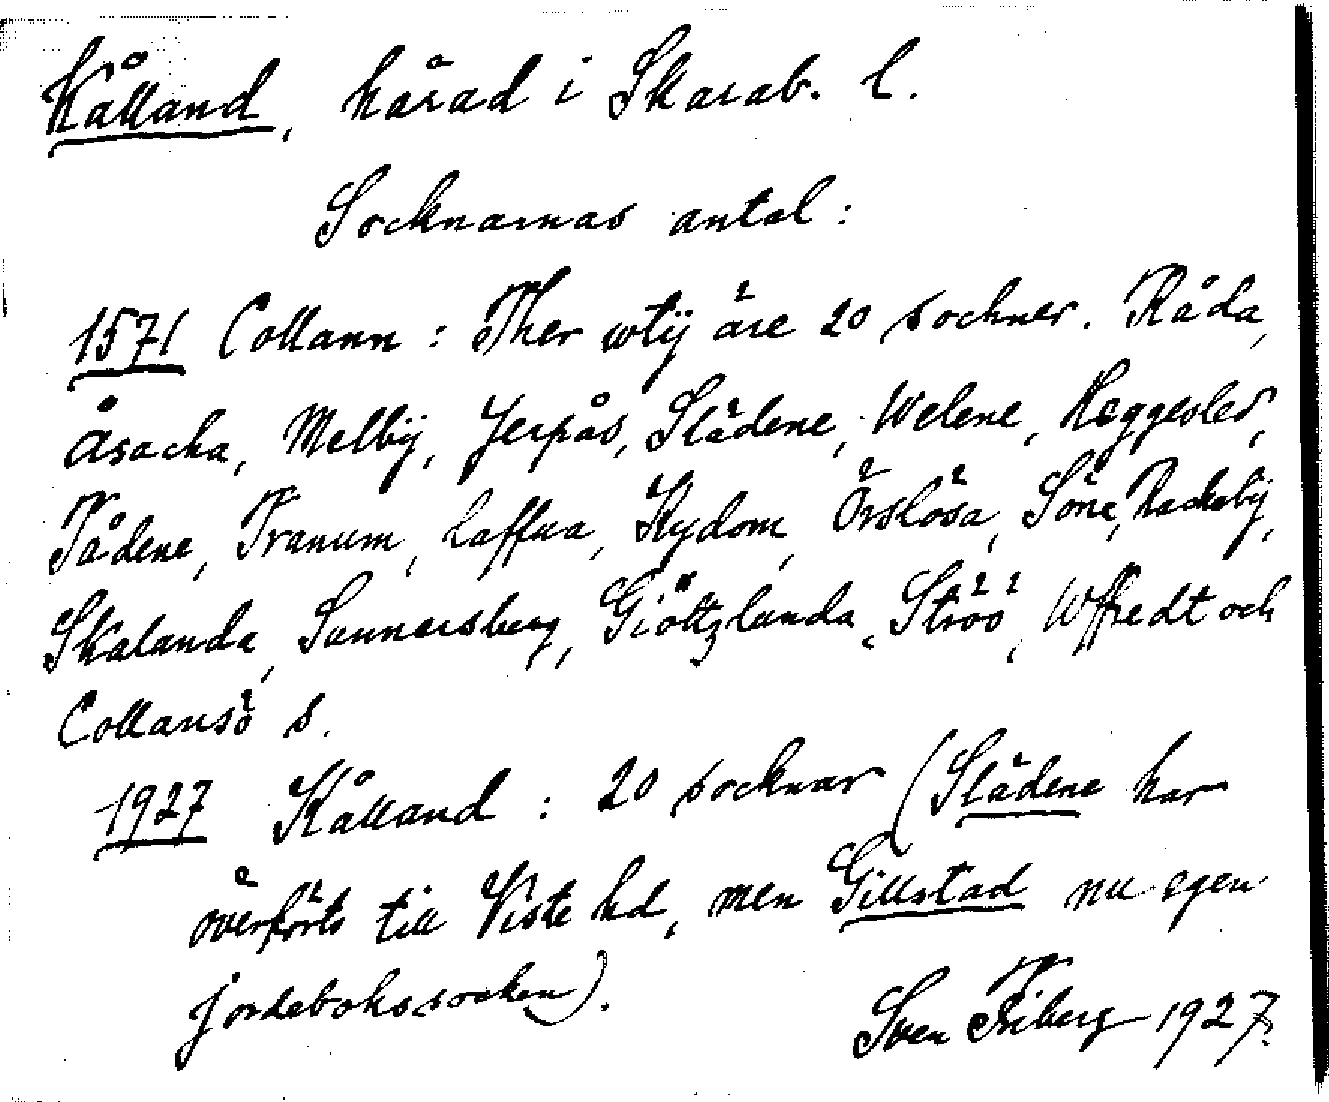 Kålland, härad i Skarab. l.
Socknarnas antal:
1571 Collann: Ther wtij äre 20 sochner. Råda,
Åsacka, Melbij, Jerpås, Slädene, Welene, Heggesled,
Tådene, Tranum, Laffua, Hydom, Örslösa, Söne, Rackebij,
Skalanda, Sunnersberg, Giötzlunda, Ströö, Wffredt och
Collansö s.
1927 Kålland: 20 socknar (Slädene har
överförts till Viste hd, men Gillstad nu egen
jordebokssocken).
Sven Friberg 1927.